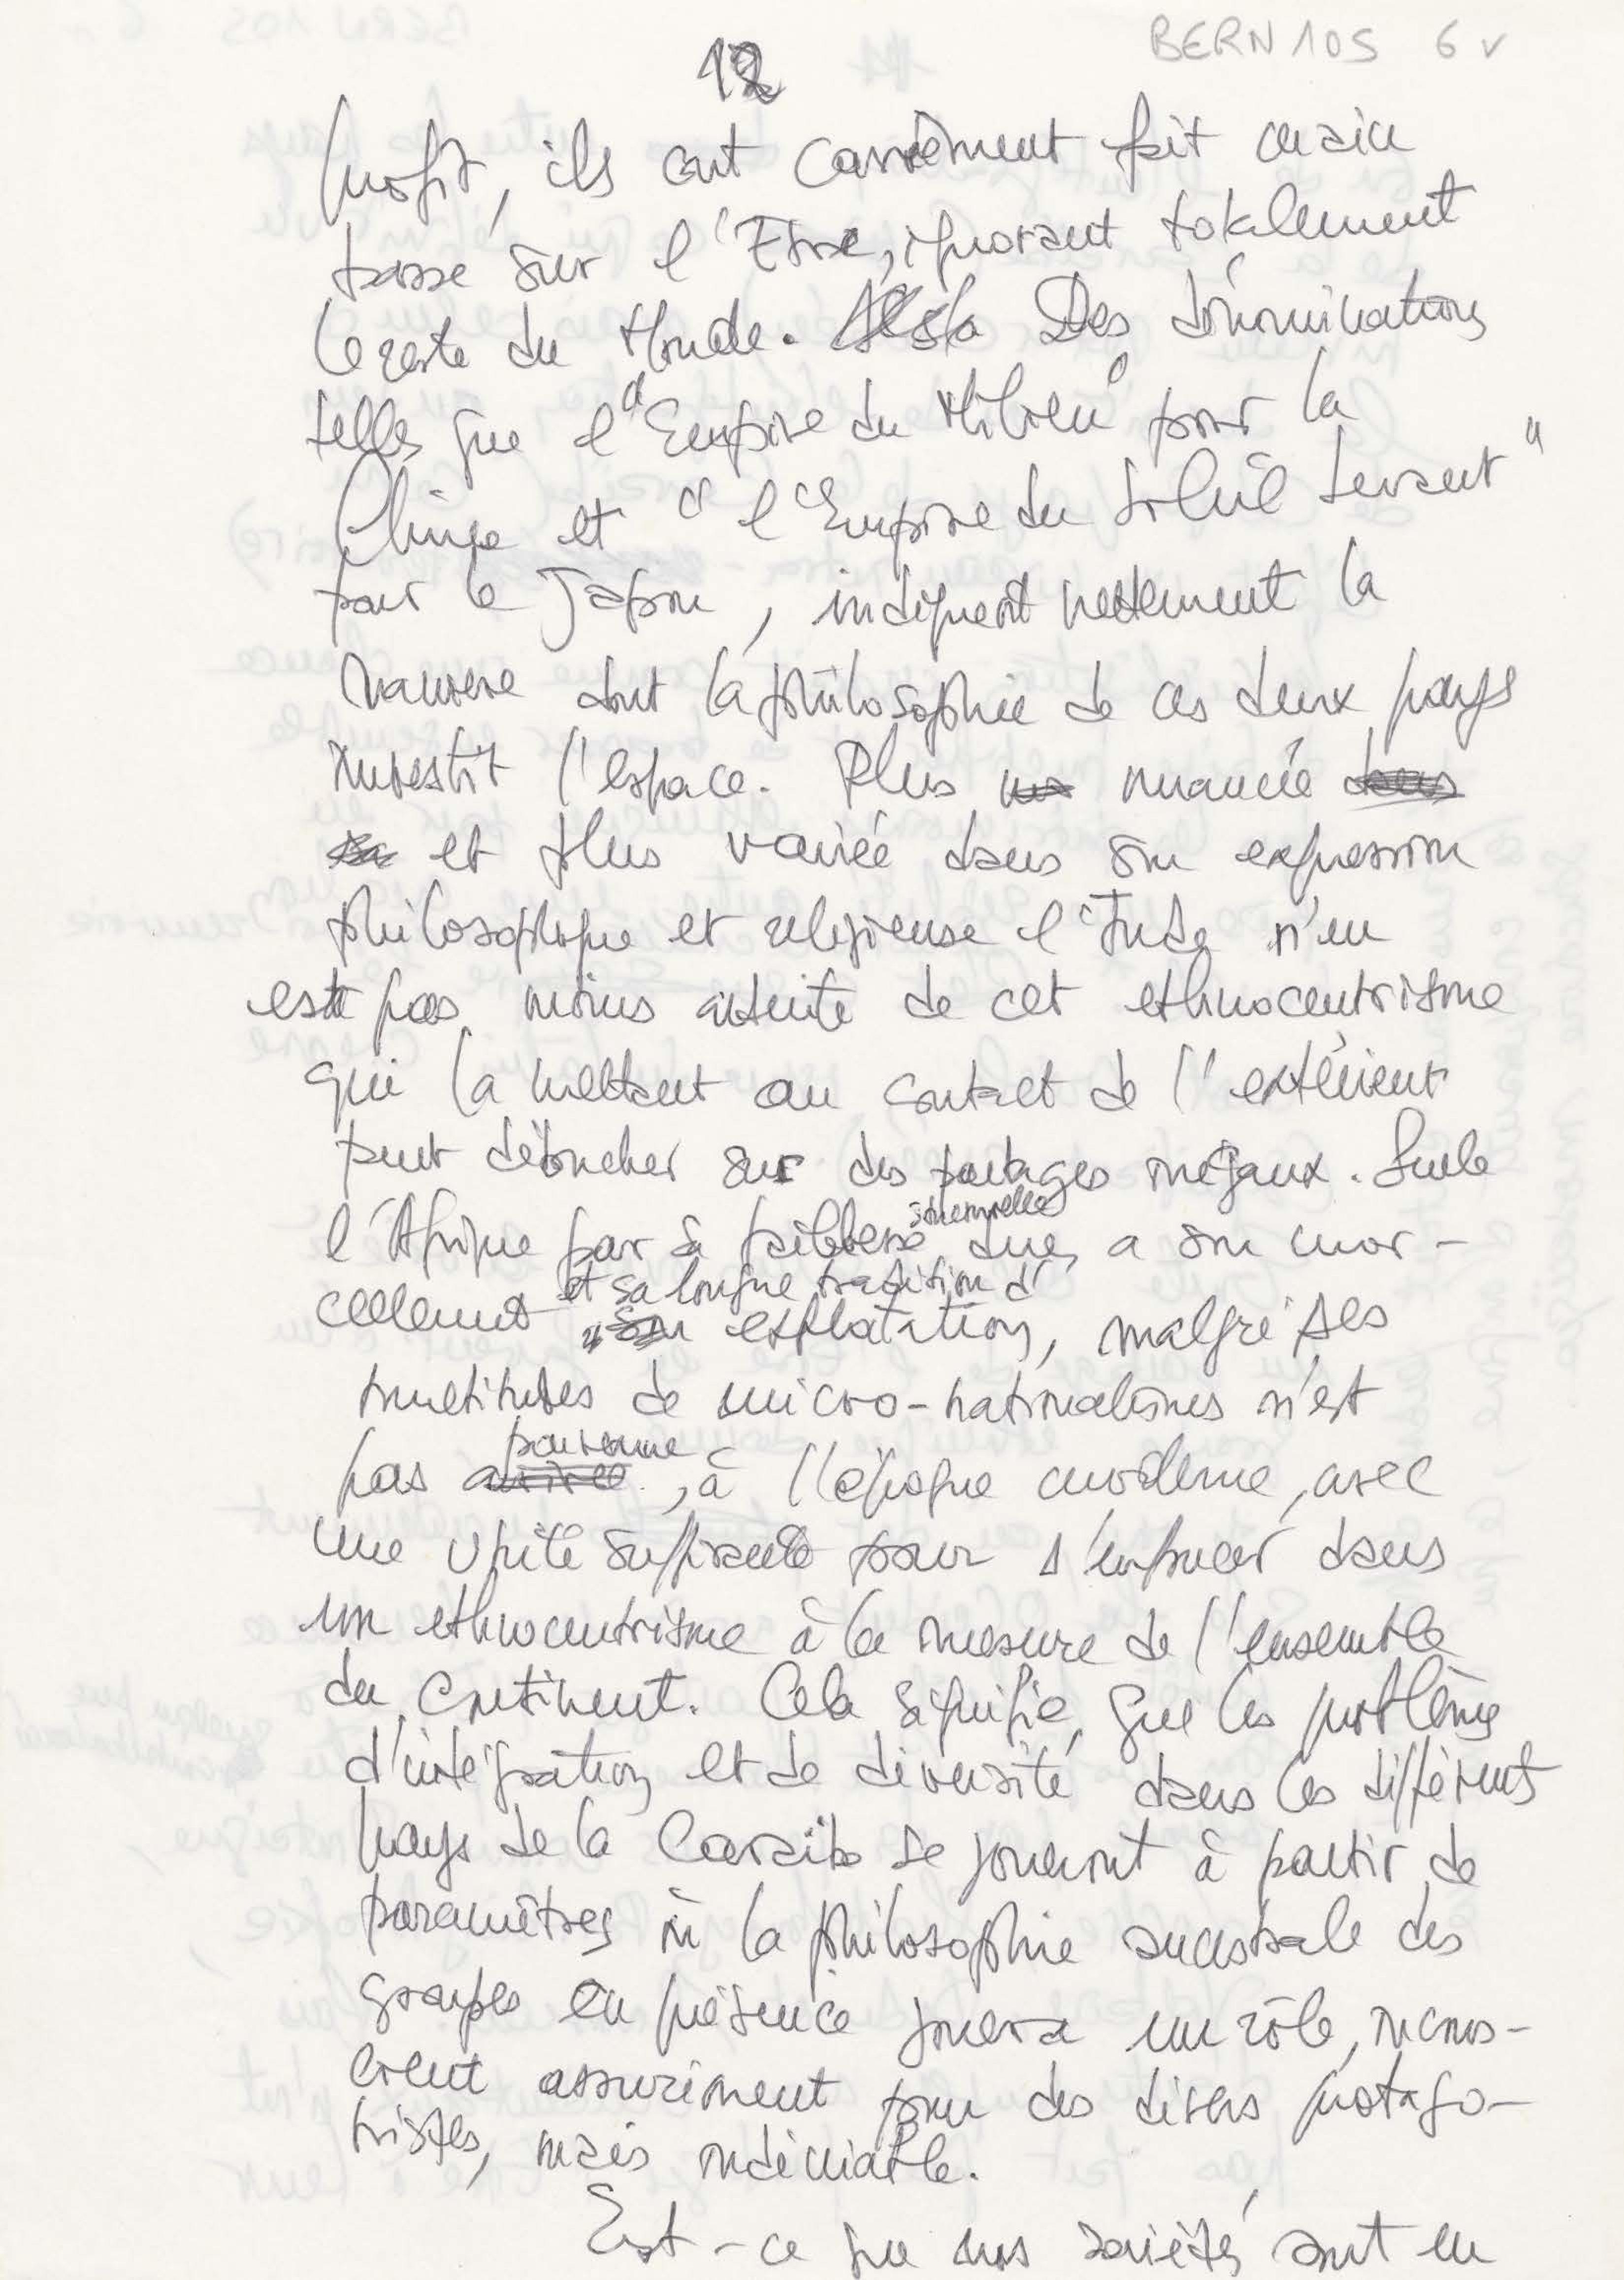 BERN 105 6 v
12
profit, ils ont carrément fait main
basse sur l'Etre, ignorant totalement
le reste du Monde. Des dénominations
telles que l'"Empire du Milieu" pour la
Chine et "l'Empire du Soleil Levant"
pour le Japon, indiquent nettement la
manière dont la philosophie de ces deux pays
investit l'espace. Plus nuancée
et plus variée dans son expression
philosophique et religieuse l'Inde n'en
est pas moins atteinte de cet ethnocentrisme
qui la mettant au contact de l'extérieur
peut déboucher sur des partages inégaux. Seule
l'Afrique par sa faiblesse structurelle due, a son mor-
cellement et sa longue tradition d'
exploitation, malgré ses
multitudes de micro-nationalismes n'est
pas parvenue, à l'époque moderne, avec
une unité suffisante pour s'enfoncer dans
un ethnocentrisme à la mesure de l'ensemble
du continent. Cela signifie que les problèmes
d'intégration et de diversité dans les différents
pays de la Caraïbe se joueront à partir de
paramètres où la philosophie ancestrale des
groupes en présence jouera un rôle, incons-
cient assurément pour des divers protago-
nistes, mais indéniable.
Est-ce que nos sociétés sont en